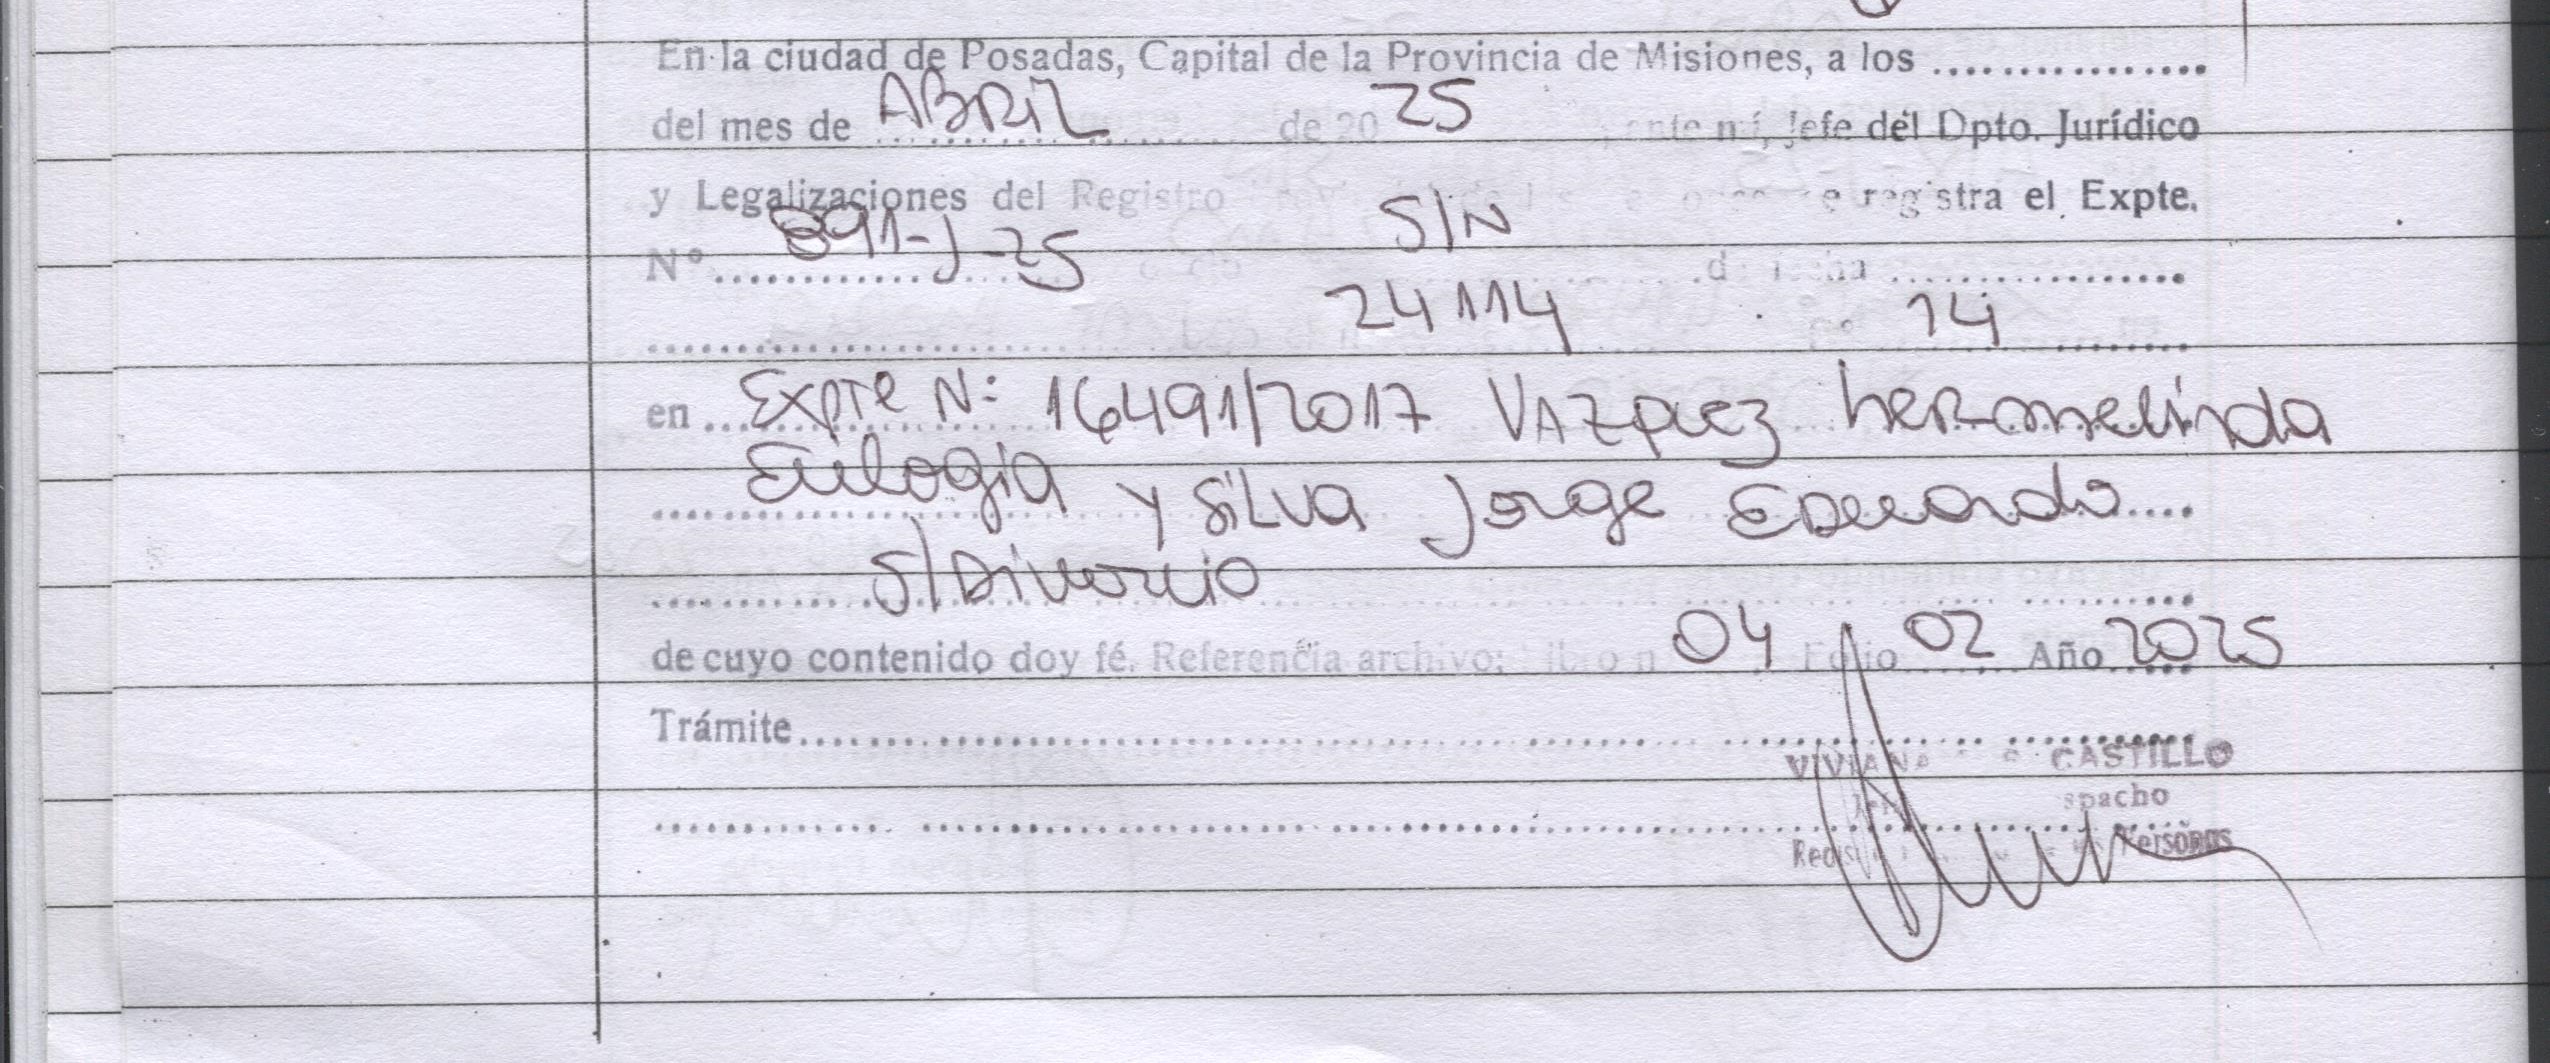 En la ciudad de Posadas, Capital de la Provincia de Misiones, a los ................
del mes de ABRIL de 20 25 ante mí, Jefe del Dpto. Jurídico
y Legalizaciones del Registro se registra el Expte.
Nº 891-J-25 S/N de fecha ................
24114 nº 14
en Expte Nº: 16491/2017 VAZquez hermelinda
Eulogia y Silva Jorge Eduardo
S/Divorcio
de cuyo contenido doy fé. Referencia archivo; Libro n 04 Folio 02 Año 2025
Trámite
VIVIANA CASTILLO
Personas